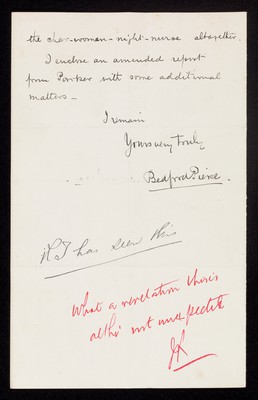 the char-women-night-nurse altogether.
I enclose an amended report
from Parker with some additional
matters —
I remain
Yours very truly
Bedford Pierce.
has seen this
What a revelation this is
altho' not unexpected